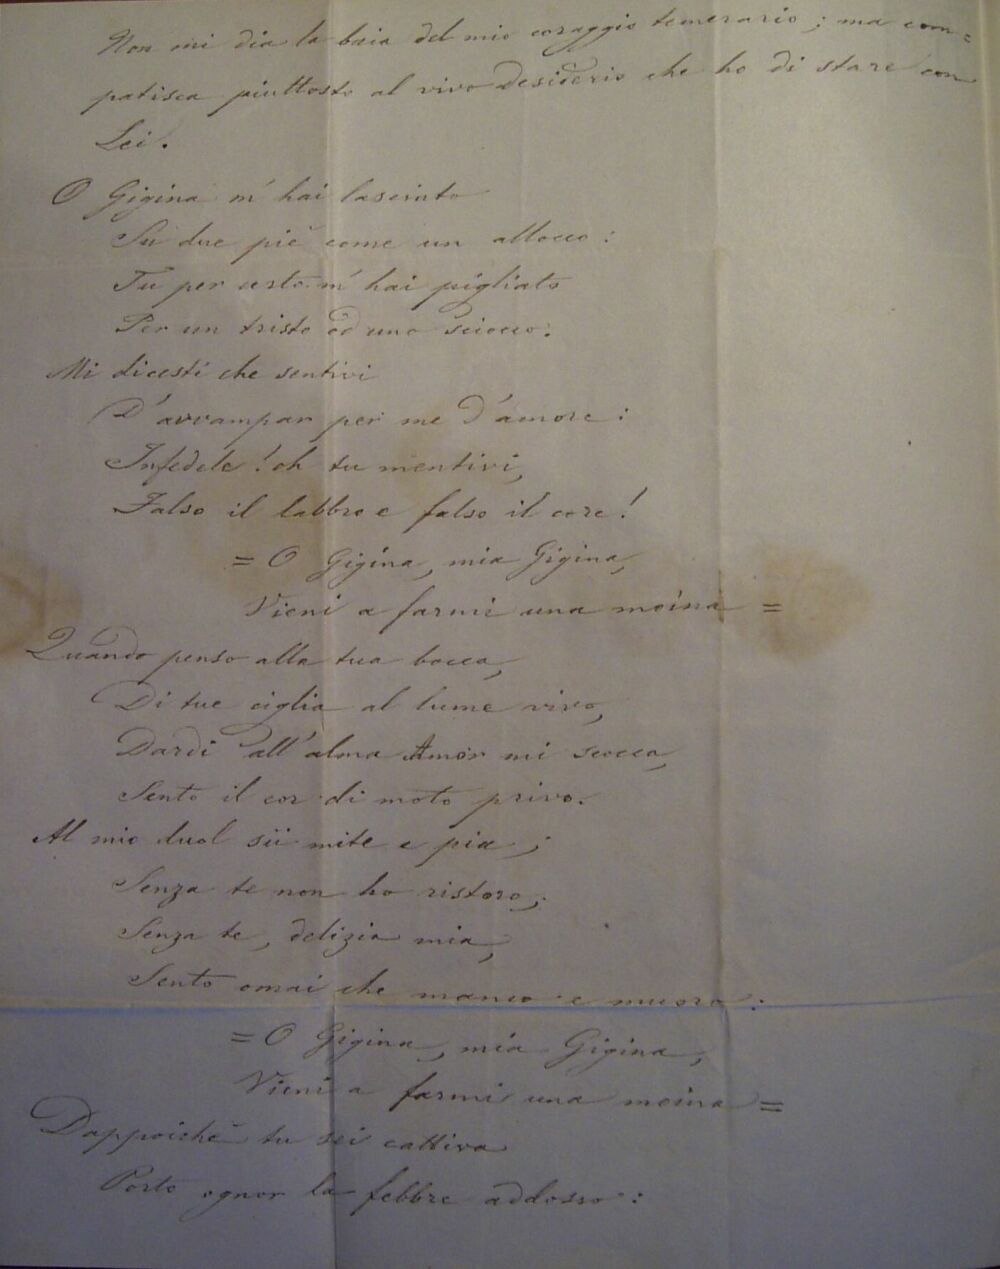 Non mi dia la baia del mio coraggio temerario; ma com=
patisca piuttosto al vivo desiderio che ho di stare con
Lei.
O Gigina m'hai lasciato
Su due piè come un allocco:
Tu per certo m'hai pigliato
Per un tristo od uno sciocco.
Mi dicesti che sentivi
D'avvampar per me d'amore:
Infedele! oh tu mentivi,
Falso il labbro e falso il core!
= O Gigina, mia Gigina,
Vieni a farmi una moina =
Quando penso alla tua bocca,
Di tue ciglia al lume vivo,
Dardi all'alma Amor mi scocca,
Sento il cor di moto privo.
Al mio duol sii mite e pia;
Senza te non ho ristoro;
Senza te, delizia mia,
Sento omai che manco e muoro:
= O Gigina, mia Gigina,
Vieni a farmi una moina =
Dappoichè tu sei cattiva
Porto ognor la febbre addosso: